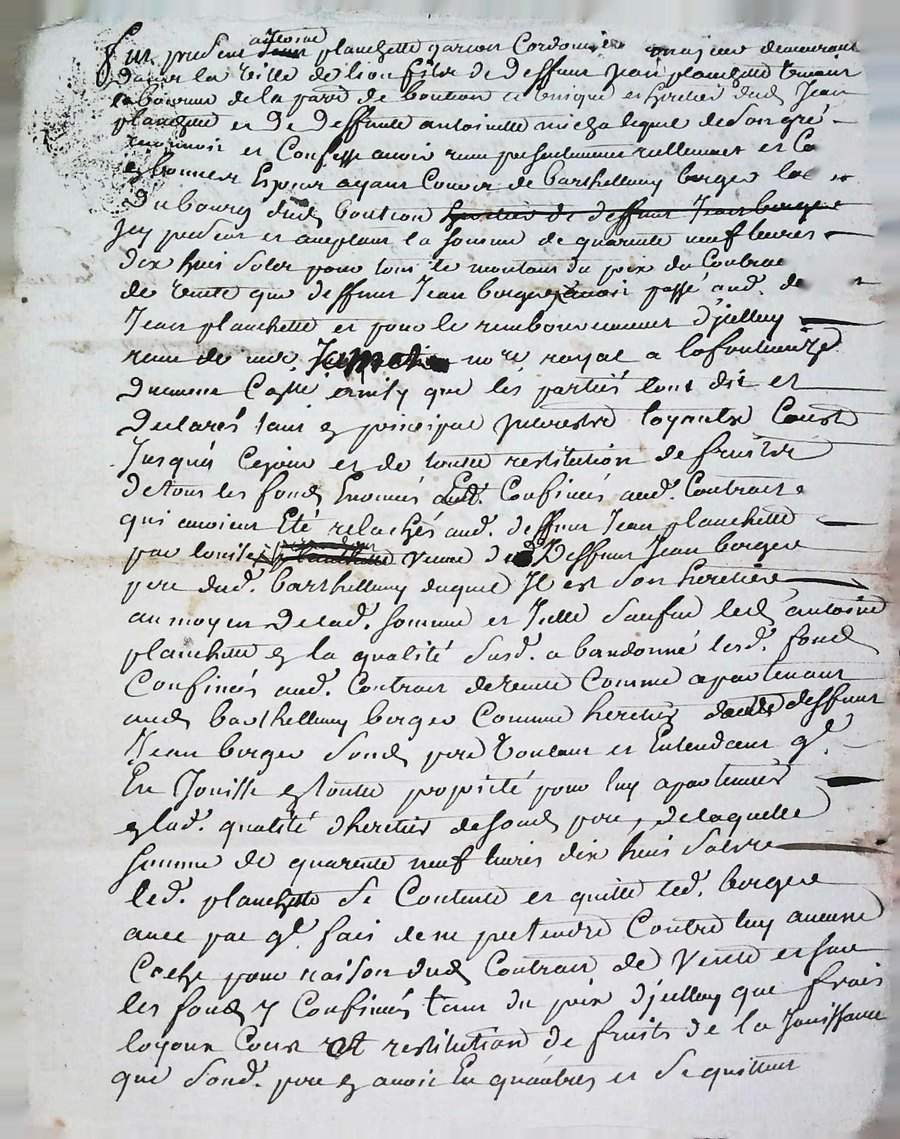 Fut présent antoine planchette garcon Cordonnier majeur demeurant
dans la ville de lion fils de deffunt jean planchette vivant
laboureur de la paroi. de boution et unique et heretier dud. Jean
planchette et de deffunte antoinette lequel de son gré
reconnoit et Confesse avoir reçu presentement reellement et
Espece ayant Cours de barthellemy berger
du bourg dud. boution heretier de deffunt Jean berger
Icy present et acceptant la somme de quarente neuf livres
dix huit solds pour tout le montant du prix du Contrat
de vente que deffunt Jean berger avoit passé aud. de
Jean planchette et pour le remboursement d'jcelluy
reçu de me. nore. royal a lafouteneize
que les parties l'ont dit et
Declarés tant en principal loyaulx Couts
Jusques Cejour et de toutte restitution de fruitds
de tous les fonds Enoncés Et Confinés aud. Contrat
qui avoient Eté relachés aud. deffunt Jean planchette
par louise veuve de Deffunt Jean berger
pere dud. barthellemy duquel Il est son heretier
au moyen de lad. somme et Icelle led. antoine
planchette en la qualité susd. a bandonné lesd. fonds
Confinés aud. Contrat de vente Comme apartenant
aud. barthellemy berger Comme heretier deffunt
Jean berger sond. pere voulant et Entendant q.
En Jouisse en toutte proprieté pour luy apartenir
en lad. qualité d'heretier de sond. pere, de laquelle
somme de quarente neuf livres dix huit sols
led. planchette se Contente et quitte led. berger
avec pac q. fait de ne pretendre Contre luy aucune
Chose pour raison dud. Contrat de vente et sur
les fonds y Confinés tant du prix d'jcelluy que frais
loyaux Cout et restitution de fruits de la Jouissance
que sond. pere en avoit Eu quautres et se quittent